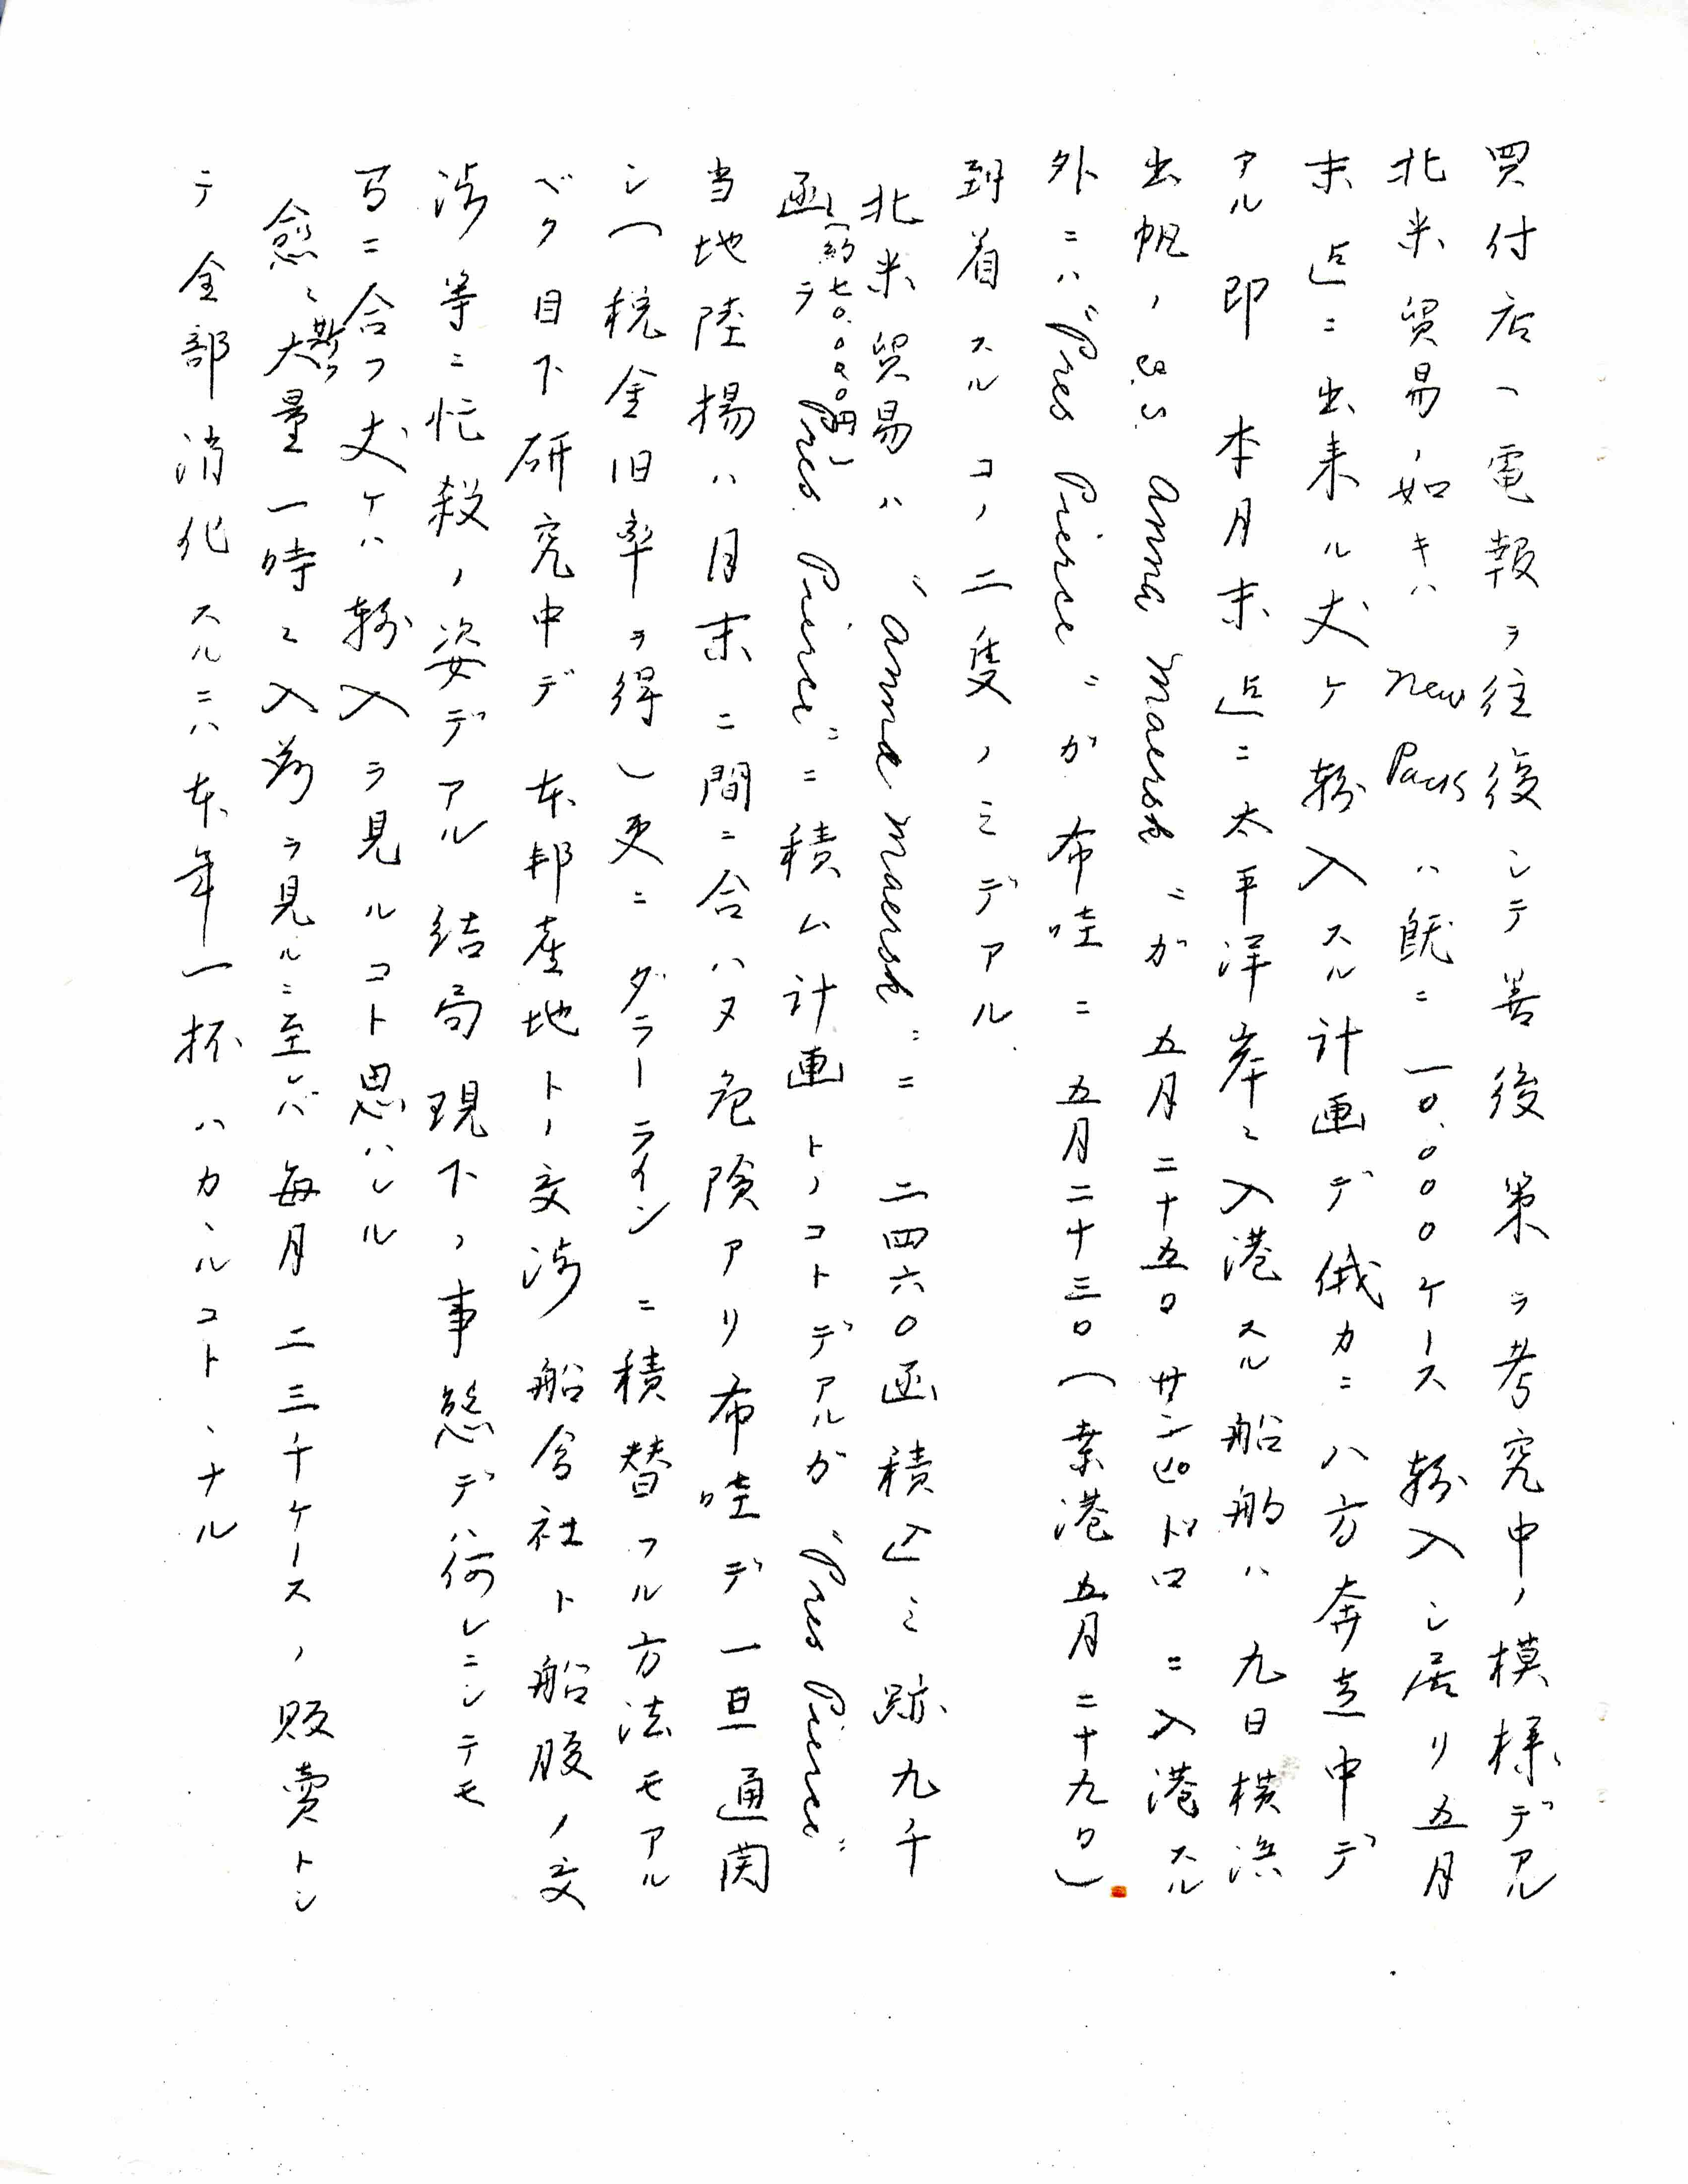 買付店ヘ電報ヲ往復シテ善後策ヲ考究中ノ模様デアル
北米貿易ノ如キハ New Packs ハ既ニ一〇.〇〇〇ケース輸入シ居リ五月
末迄ニ出来ル丈ケ輸入スル計画デ俄カニ八方奔走中デ
アル 即 本月末迄ニ太平洋岸ニ入港スル船舶ハ 九日横浜
出帆ノ S.S. Anna Maersk〃ガ 五月二十五日 サンピドロニ入港スル
外ニハ〝Pres Pierce〃ガ布哇ニ五月二十三日(桑港五月二十九日)
到着スルコノ二隻ノミデアル
北米貿易ハ〝Anna Maersk〃ニ 二四六〇函積込ミ跡九千
函(約七〇.〇〇〇円)ヲ Pres Pierce〃ニ積ム計画トノコトデアルガ〝Pres Pierce〃
当地陸揚ハ月末ニ間ニ合ハヌ危険アリ布哇デ一旦通関
シ(税金旧率ヲ得)更ニダラーラインニ積替フル方法モアル
ベク目下研究中デ本邦産地トノ交渉船会社ト船腹ノ交
渉等ニ忙殺ノ姿デアル 結局現下ノ事態デハ何レニシテモ
間ニ合フ丈ケハ輸入ヲ見ルコト思ハレル
愈々斯ク大量一時ニ入荷ヲ見ルニ至レバ毎月二三千ケースノ販賣トシ
テ全部消化スルニハ本年一杯ハカヽルコトヽナル